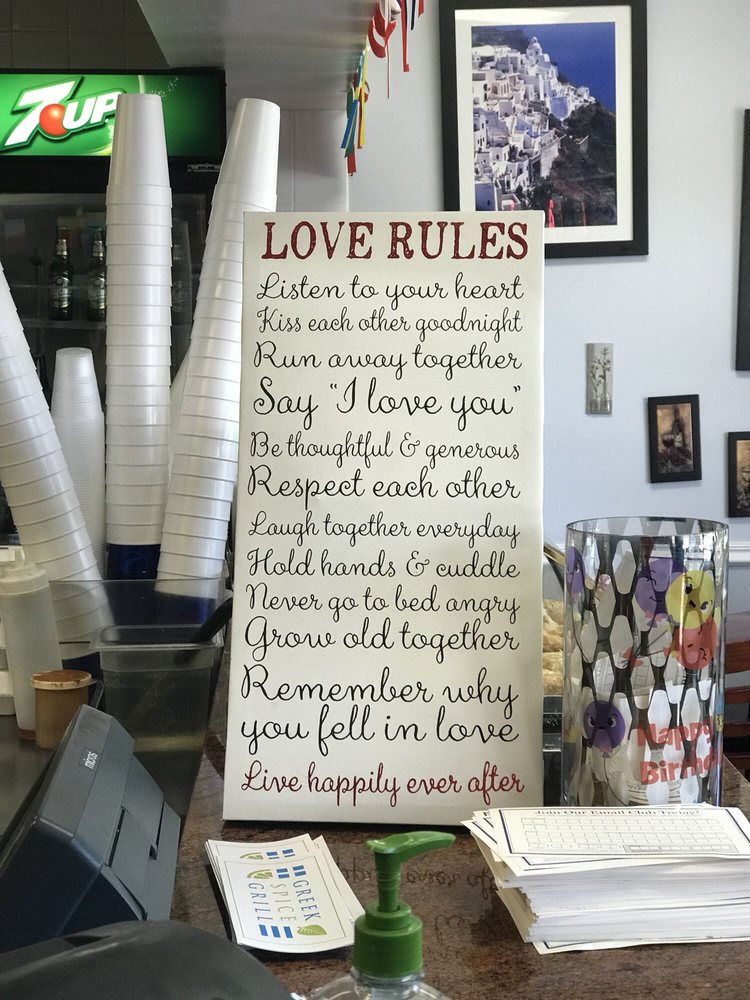 7UP
LOVE RULES
Listen to your heart
Kiss each other goodnight
Run away together
Say "I love you"
Be thoughtful & generous
Respect each other
Laugh together everyday
Hold hands & cuddle
Never go to bed angry
Grow old together
Remember why
you fell in love
Live happily ever after
micros
Happy
Join Our Email Club Today!
GREEK
SPICE
GRILL